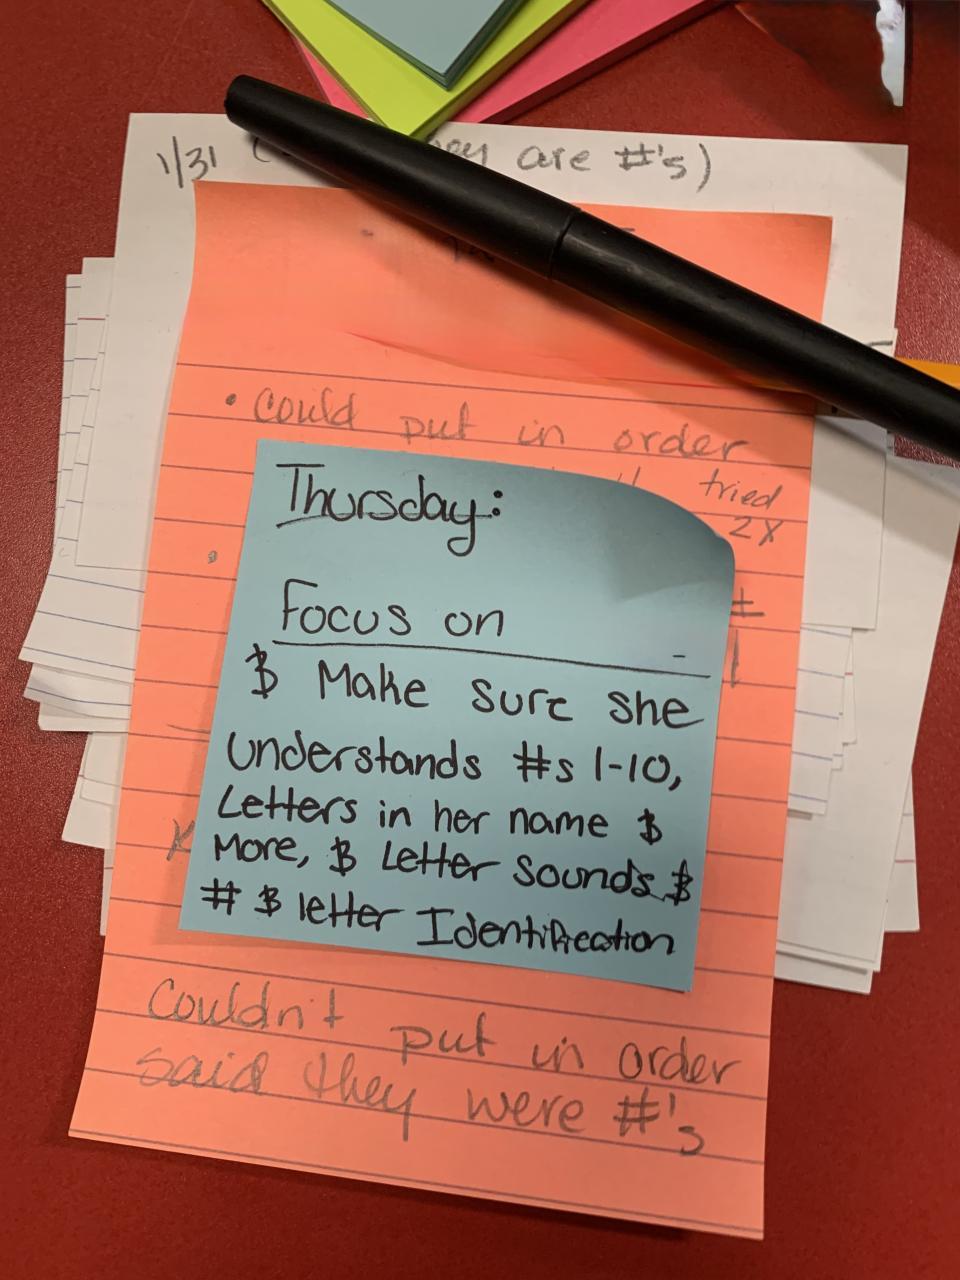 1/31 ( are #'s)
• Could put in order
tried
2X
Thursday:
Focus on
$ Make sure she
understands #s 1-10,
Letters in her name $
More, $ Letter Sounds $
# $ letter Identification
Couldn't put in order
said they were #'s